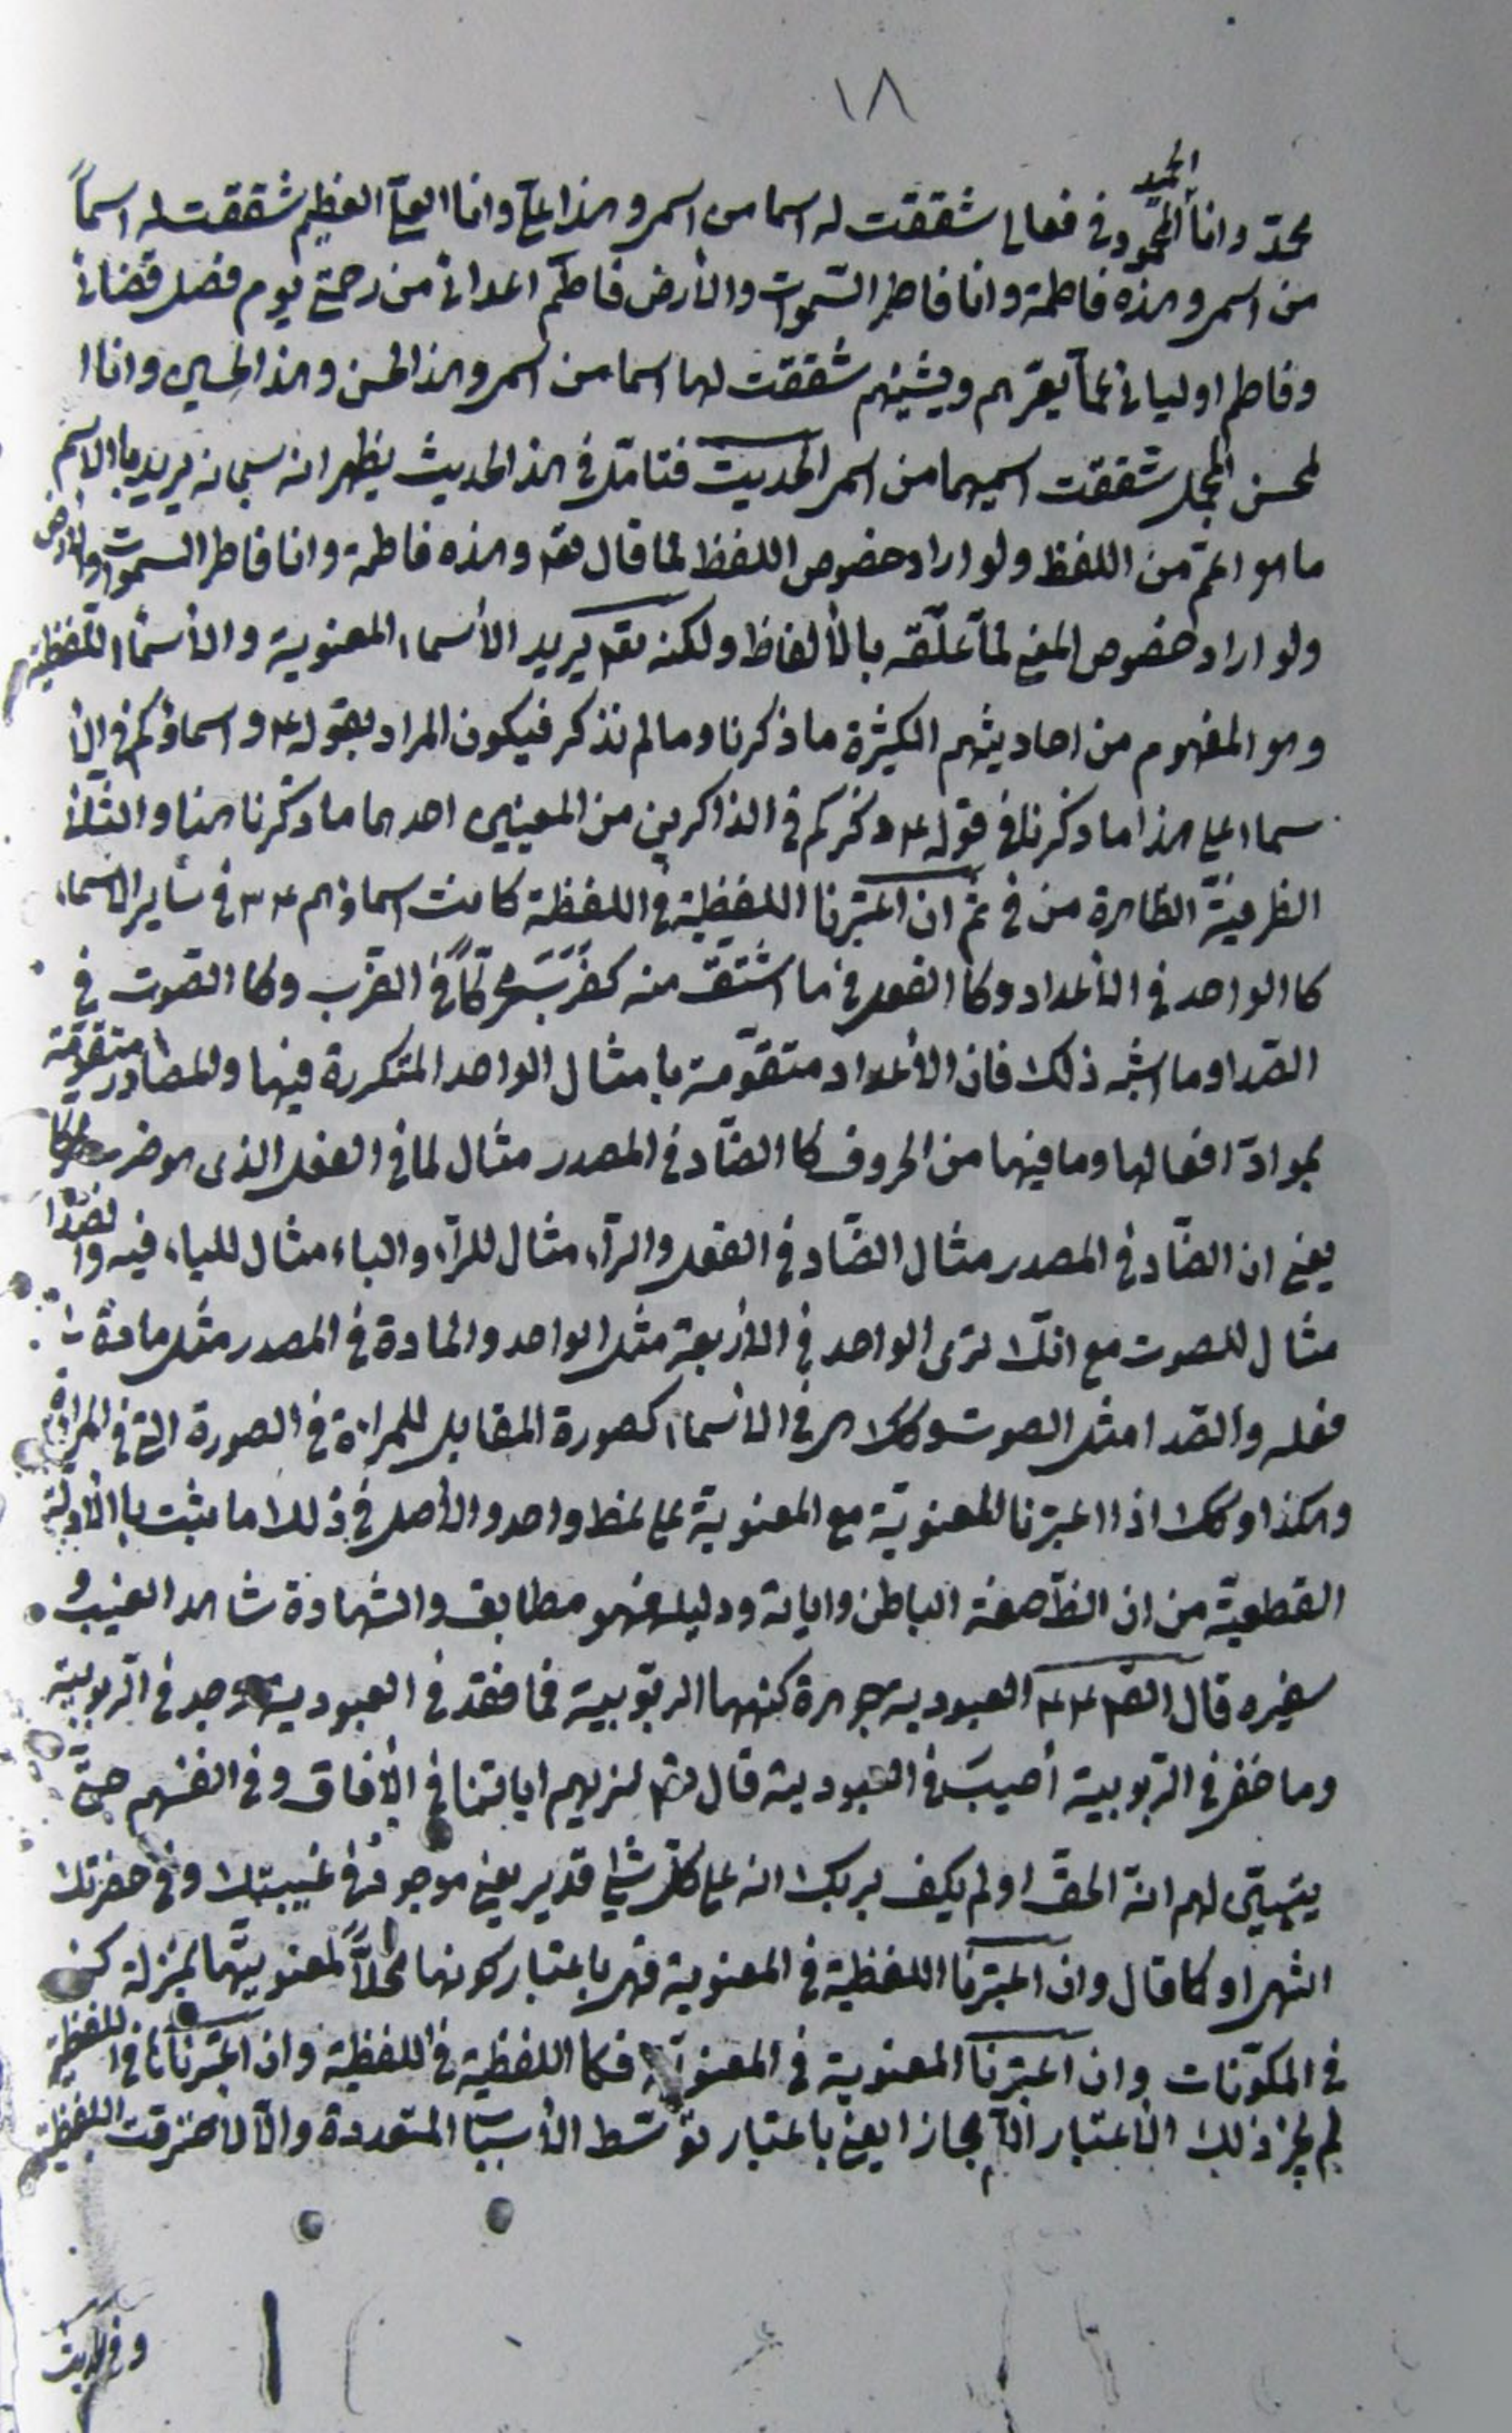 ١٨
محمد وانا الحميد المحمود في فعالى شققت له اسما من اسمى وهذا على وانا العلى العظيم شققت له اسماً
من اسمى وهذه فاطمة وانا فاطر السّموات والأرض فاطم اعدائى من رحمتى يوم فصل قضائى
وفاطم اوليائى عمّا يعرّهم ويشينهم شققت لها اسما من اسمى وهذا الحسن وهذا الحسين وانا ا
لمحسن المجمل شققت اسميهما من اسمى الحديث فتامّل في هذا الحديث يظهر انه سبحانه يريد بالاسم
ما هو اعمّ من اللفظ ولو اراد خصوص اللفظ لما قال تعه وهذه فاطمة وانا فاطر السموات والأرض
ولو اراد خصوص المعنى لما علّقه بالألفاظ ولكنه تعه يريد الأسماء المعنوية والأسماء اللّفظية
وهو المفهوم من احاديثهم الكثيرة ما ذكرنا وما لم نذكر فيكون المراد بقوله ع واسماؤكم في الأ
سماء على هذا ما ذكرنا في قوله ع ذكركم في الذاكرين من المعنيين احدهما ما ذكرنا هنا والثانى
الظرفيّة الظاهرة من في ثم ان اعتبرنا اللفظية في اللفظة كانت اسماؤهم ع في ساير الاسماء
كا الواحد في الأعداد وكا الفعل في ما اشتقّ منه كضرب في الضّرب وكا الصوت في
الصّدا وما اشبه ذلك فان الأعداد متقوّمة بامثال الواحد المتكررة فيها والمصادر متقوّمة
بموادّ افعالها وما فيها من الحروف كا الضّاد في المصدر مثال لما في الفعل الذى هو ضرب
يعنى ان الضّاد في المصدر مثال الضّاد في الفعل والرّاء مثال للرّاء والباء مثال للباء فيه والصّدا
مثال للصوت مع انّك ترى الواحد في الأربعة مثل الواحد والمادة في المصدر مثل مادة
فعله والصّدا مثل الصوت وكك هى في الأسماء كصورة المقابل للمرءاة في الصورة التى في المراة
وهكذا وكك اذا اعتبرنا المعنويّة مع المعنوية على نمط واحد والأصل في ذلك ما ثبت با الأدلّة
القطعيّة من ان الظّ صفة الباطن وايانة ودليله فهو مطابق والشهادة شاهد الغيب و
سفيره قال الصّ ع العبودية جوهرة كنهها الربوبية فما فقد في العبودية وجد في الرّبوبية
وما خفى في الرّبوبية أصيب في العبودية قال تعه سنريهم اياتنا في الآفاق وفى انفسهم حتّى
يتبيّن لهم انّه الحقّ اولم يكف بربك انه على كلّ شئ قدير يعنى موجود في غيبتك وفى حضرتك
انتهى او كا قال وان اعتبرنا اللفظية في المعنوية فهى باعتبار كونها محلاًّ لمعنويتها بمنزلة كن
في المكوّنات وان اعتبرنا المعنوية في المعنوية فكا اللفظية في اللفظية وان اعتبرناها في اللفظية
لم يجز ذلك الأعتبار الّا مجازا يعنى باعتبار توسّط الأسباب المتعددة والّا لاحترقت اللفظية
وفى الحديث